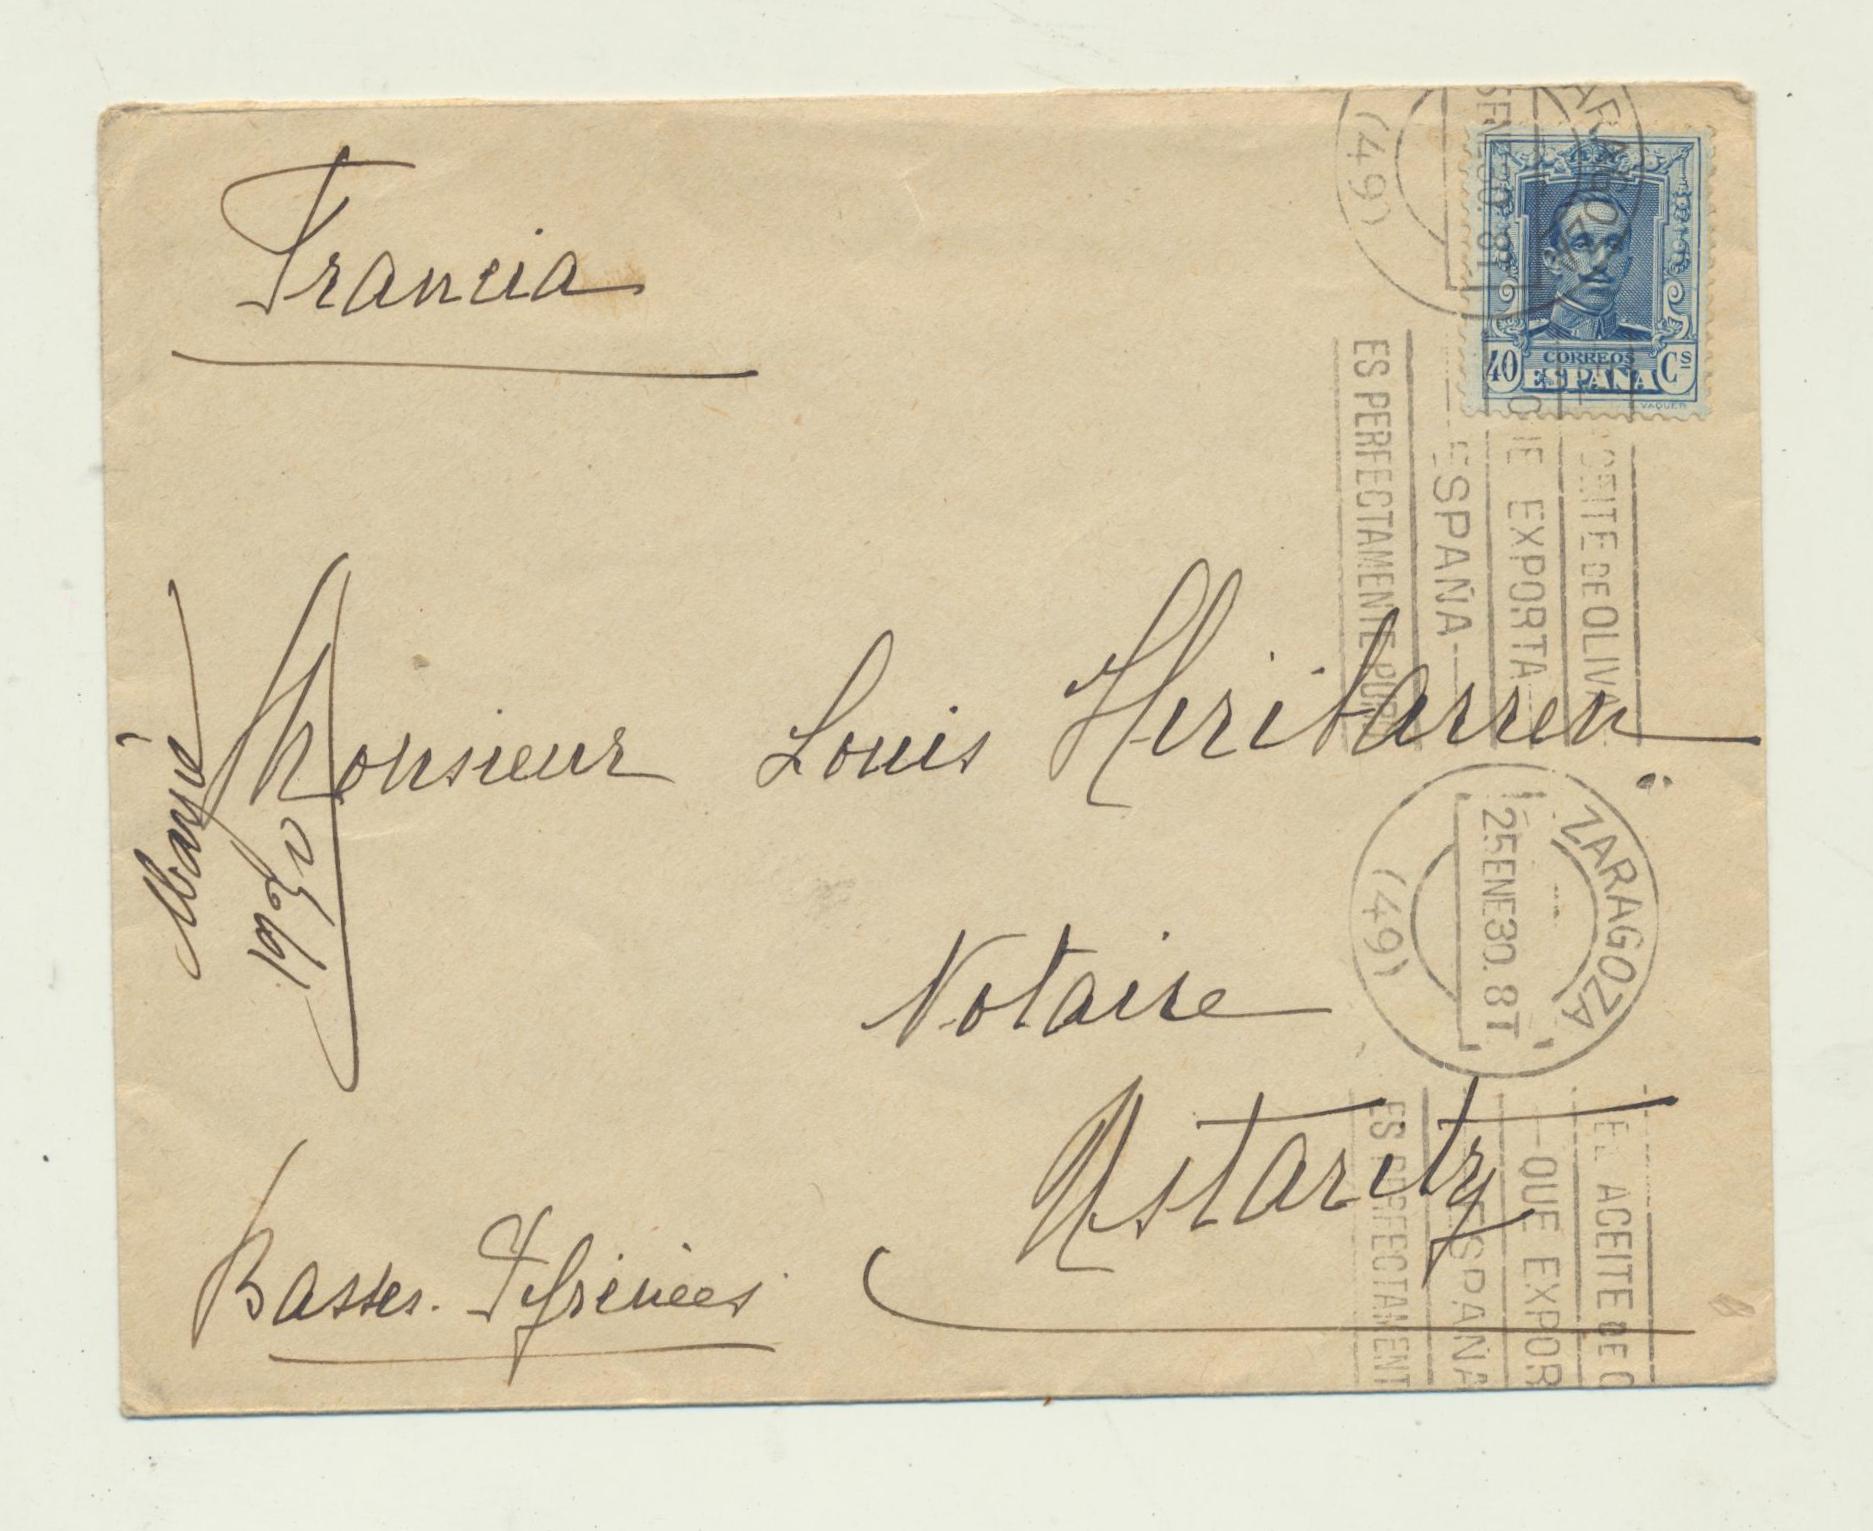 Francia
Monsieur Louis Hiribarren
Notaire
Ustaritz
Basses-Pyrénées
1930
40 Cs
CORREOS
ESPAÑA
VAQUER
(49)
ACEITE DE OLIVA
QUE EXPORTA
ESPAÑA
ES PERFECTAMENTE PURO
ZARAGOZA
25 ENE 30. 8T
(49)
EL ACEITE DE O
QUE EXPOR
ESPAÑA
ES PERFECTAMENT